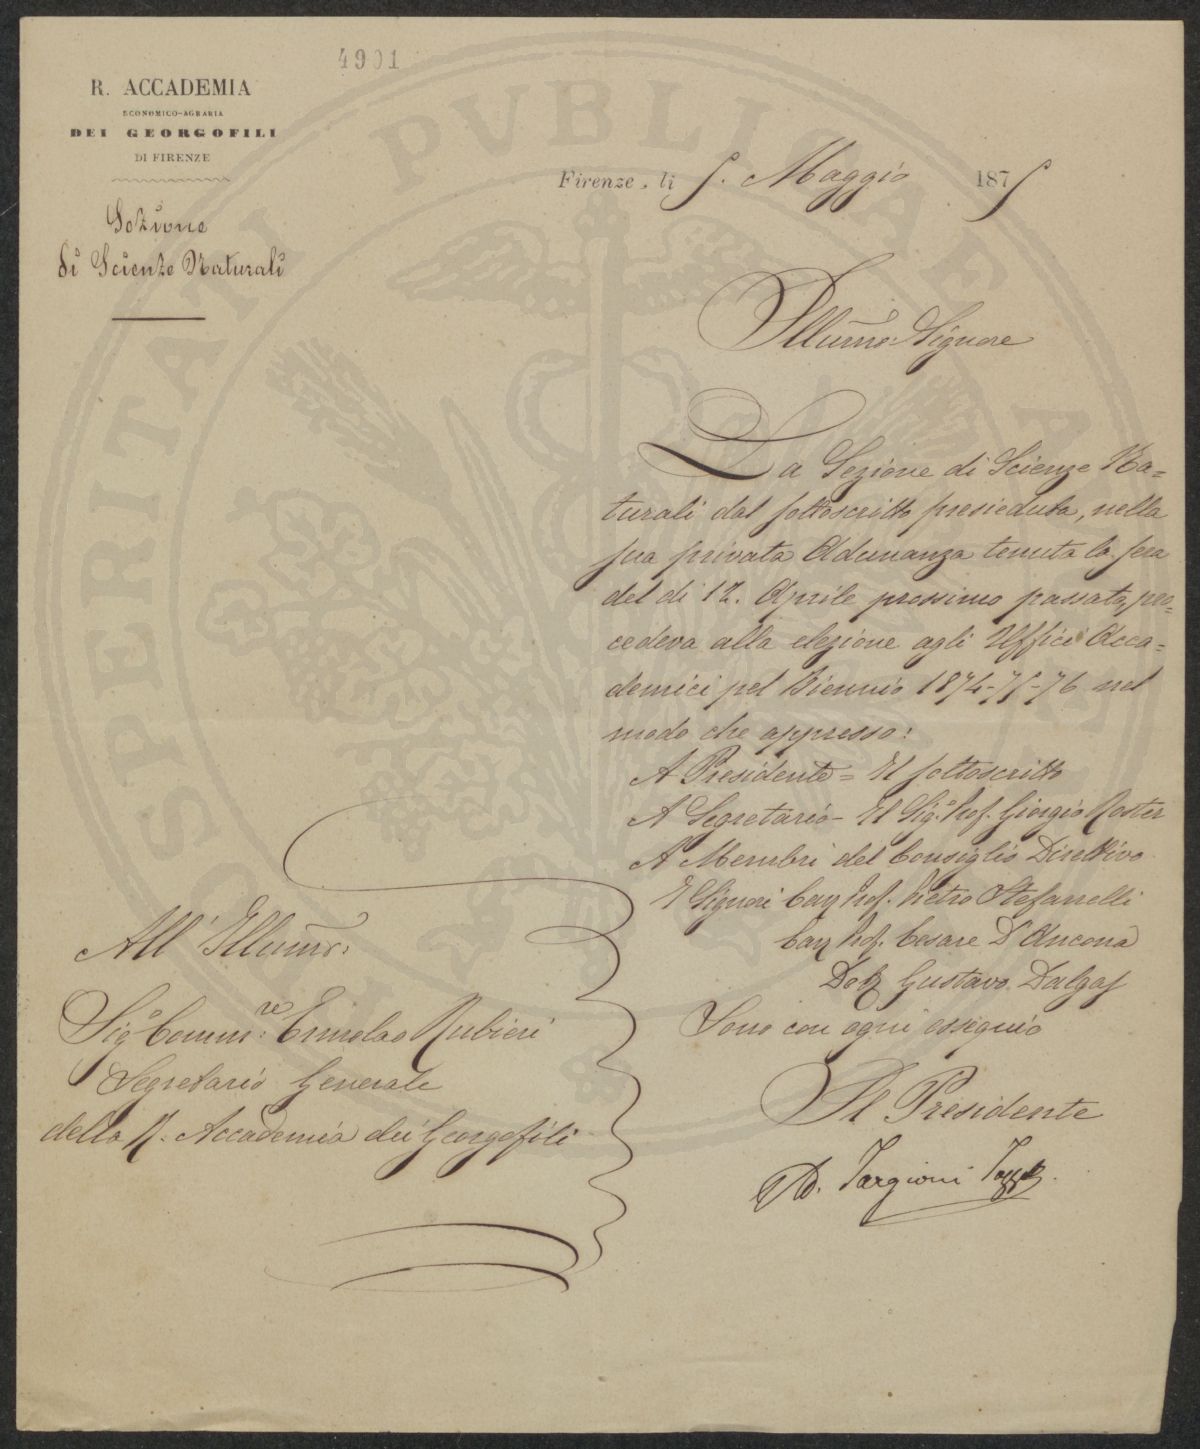 4901
R. ACCADEMIA
ECONOMICO-AGRARIA
DEI GEORGOFILI
DI FIRENZE
Sezione
di Scienze Naturali
Firenze, li 5. Maggio 1875
Illumo: Signore
La Sezione di Scienze Na=
turali dal sottoscritto presieduta, nella
sua privata Adunanza tenuta la sera
del di 12. Aprile prossimo passato, pro=
cedeva alla elezione agli Uffici Acca=
demici pel Biennio 1874-75-76 nel
modo che appresso:
A Presidente = Il sottoscritto
A Segretario - Il Sig.o Prof. Giorgio Roster
A Membri del Consiglio Direttivo
I Signori Cav Prof. Pietro Stefanelli
Cav Prof. Cesare D'Ancona
Dott Gustavo Dalgas
Sono con ogni ossequio
Il Presidente
Ad. Targioni Tozzetti
All'Illumo:
Sig.o Comm:re Ermolao Rubieri
Segretario Generale
della R. Accademia dei Georgofili
PROSPERITATI PVBLICAE AVGENDAE